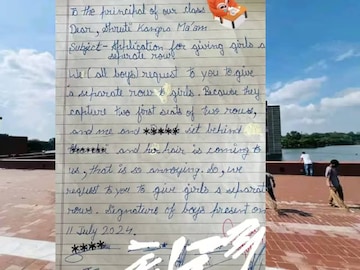 To the principal of our class
Dear, Shruti Kangra Ma'am
Subject - Application for giving girls a
separate row
We (all boys) request to you to give
a separate row to girls. Because they
capture two first seats of two rows,
and me and ***** set behind
and her hair is coming to
us, that is so annoying. So, we
request to you to give girls a separate
rows. Signature of boys present on
11 July 2024.
****